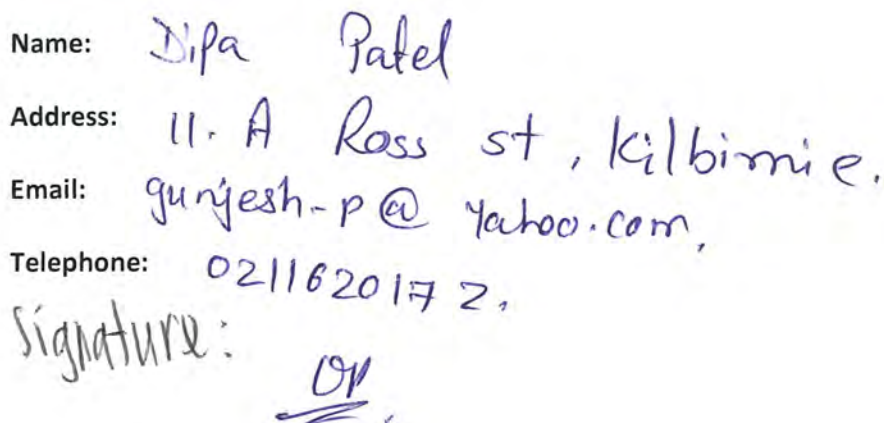 Name: Dipa Patel
Address: 11. A Ross st, Kilbirnie.
Email: gunjesh-p@yahoo.com,
Telephone: 0211620172.
Signature:
DP